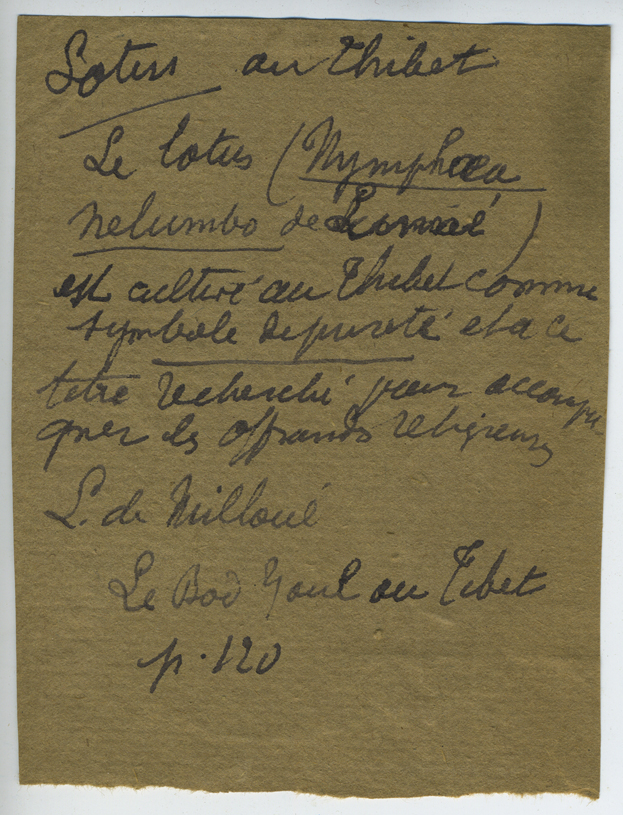 Lotus au Thibet
Le lotus (Nymphæa
nelumbo de Linné)
est cultivé au Thibet comme
symbole de pureté et a ce
titre recherché pour accompa-
gner les offrandes religieuses
L. de Milloué
Le Bod Youl ou Tibet
p. 120